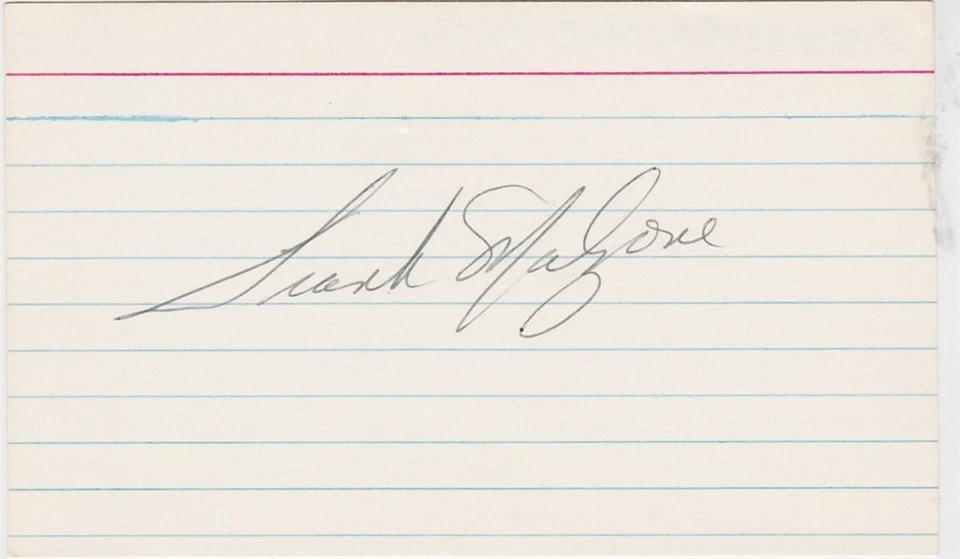 Frank Malzone